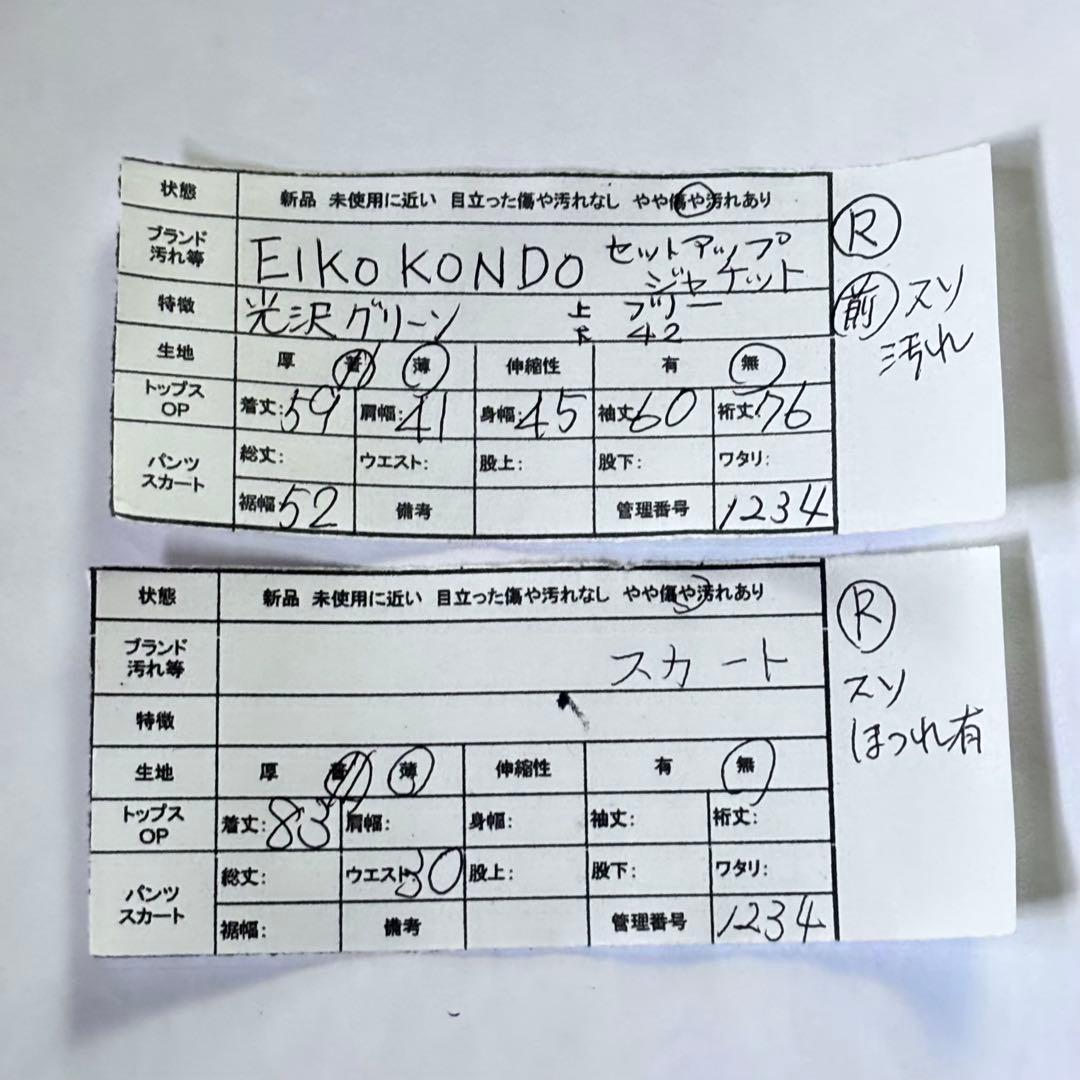 状態 新品 未使用に近い 目立った傷や汚れなし やや傷や汚れあり
ブランド
汚れ等
EIKO KONDO セットアップ
ジャケット
特徴 光沢グリーン 上 フリー
下 42
生地 厚 薄 伸縮性 有 無
トップス
OP
着丈:59 肩幅:41 身幅:45 袖丈:60 裄丈:76
パンツ
スカート
総丈: ウエスト: 股上: 股下: ワタリ:
裾幅:52 備考 管理番号 1234
R
前 スソ
汚れ
状態 新品 未使用に近い 目立った傷や汚れなし やや傷や汚れあり
ブランド
汚れ等
スカート
特徴
生地 厚 薄 伸縮性 有 無
トップス
OP
着丈:83 肩幅: 身幅: 袖丈: 裄丈:
パンツ
スカート
総丈: ウエスト:30 股上: 股下: ワタリ:
裾幅: 備考 管理番号 1234
R
スソ
ほつれ有